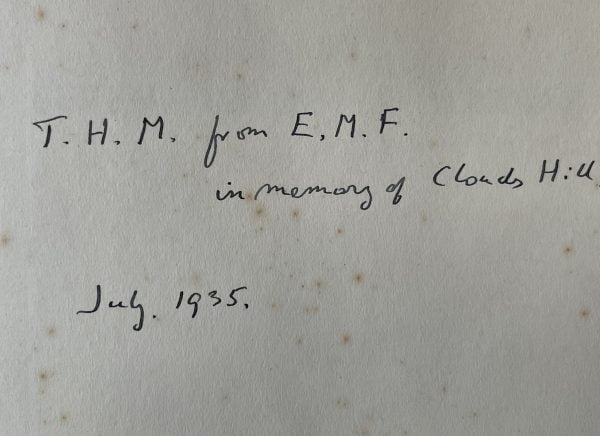 T. H. M. from E. M. F.
in memory of Clouds Hill.
July. 1935.